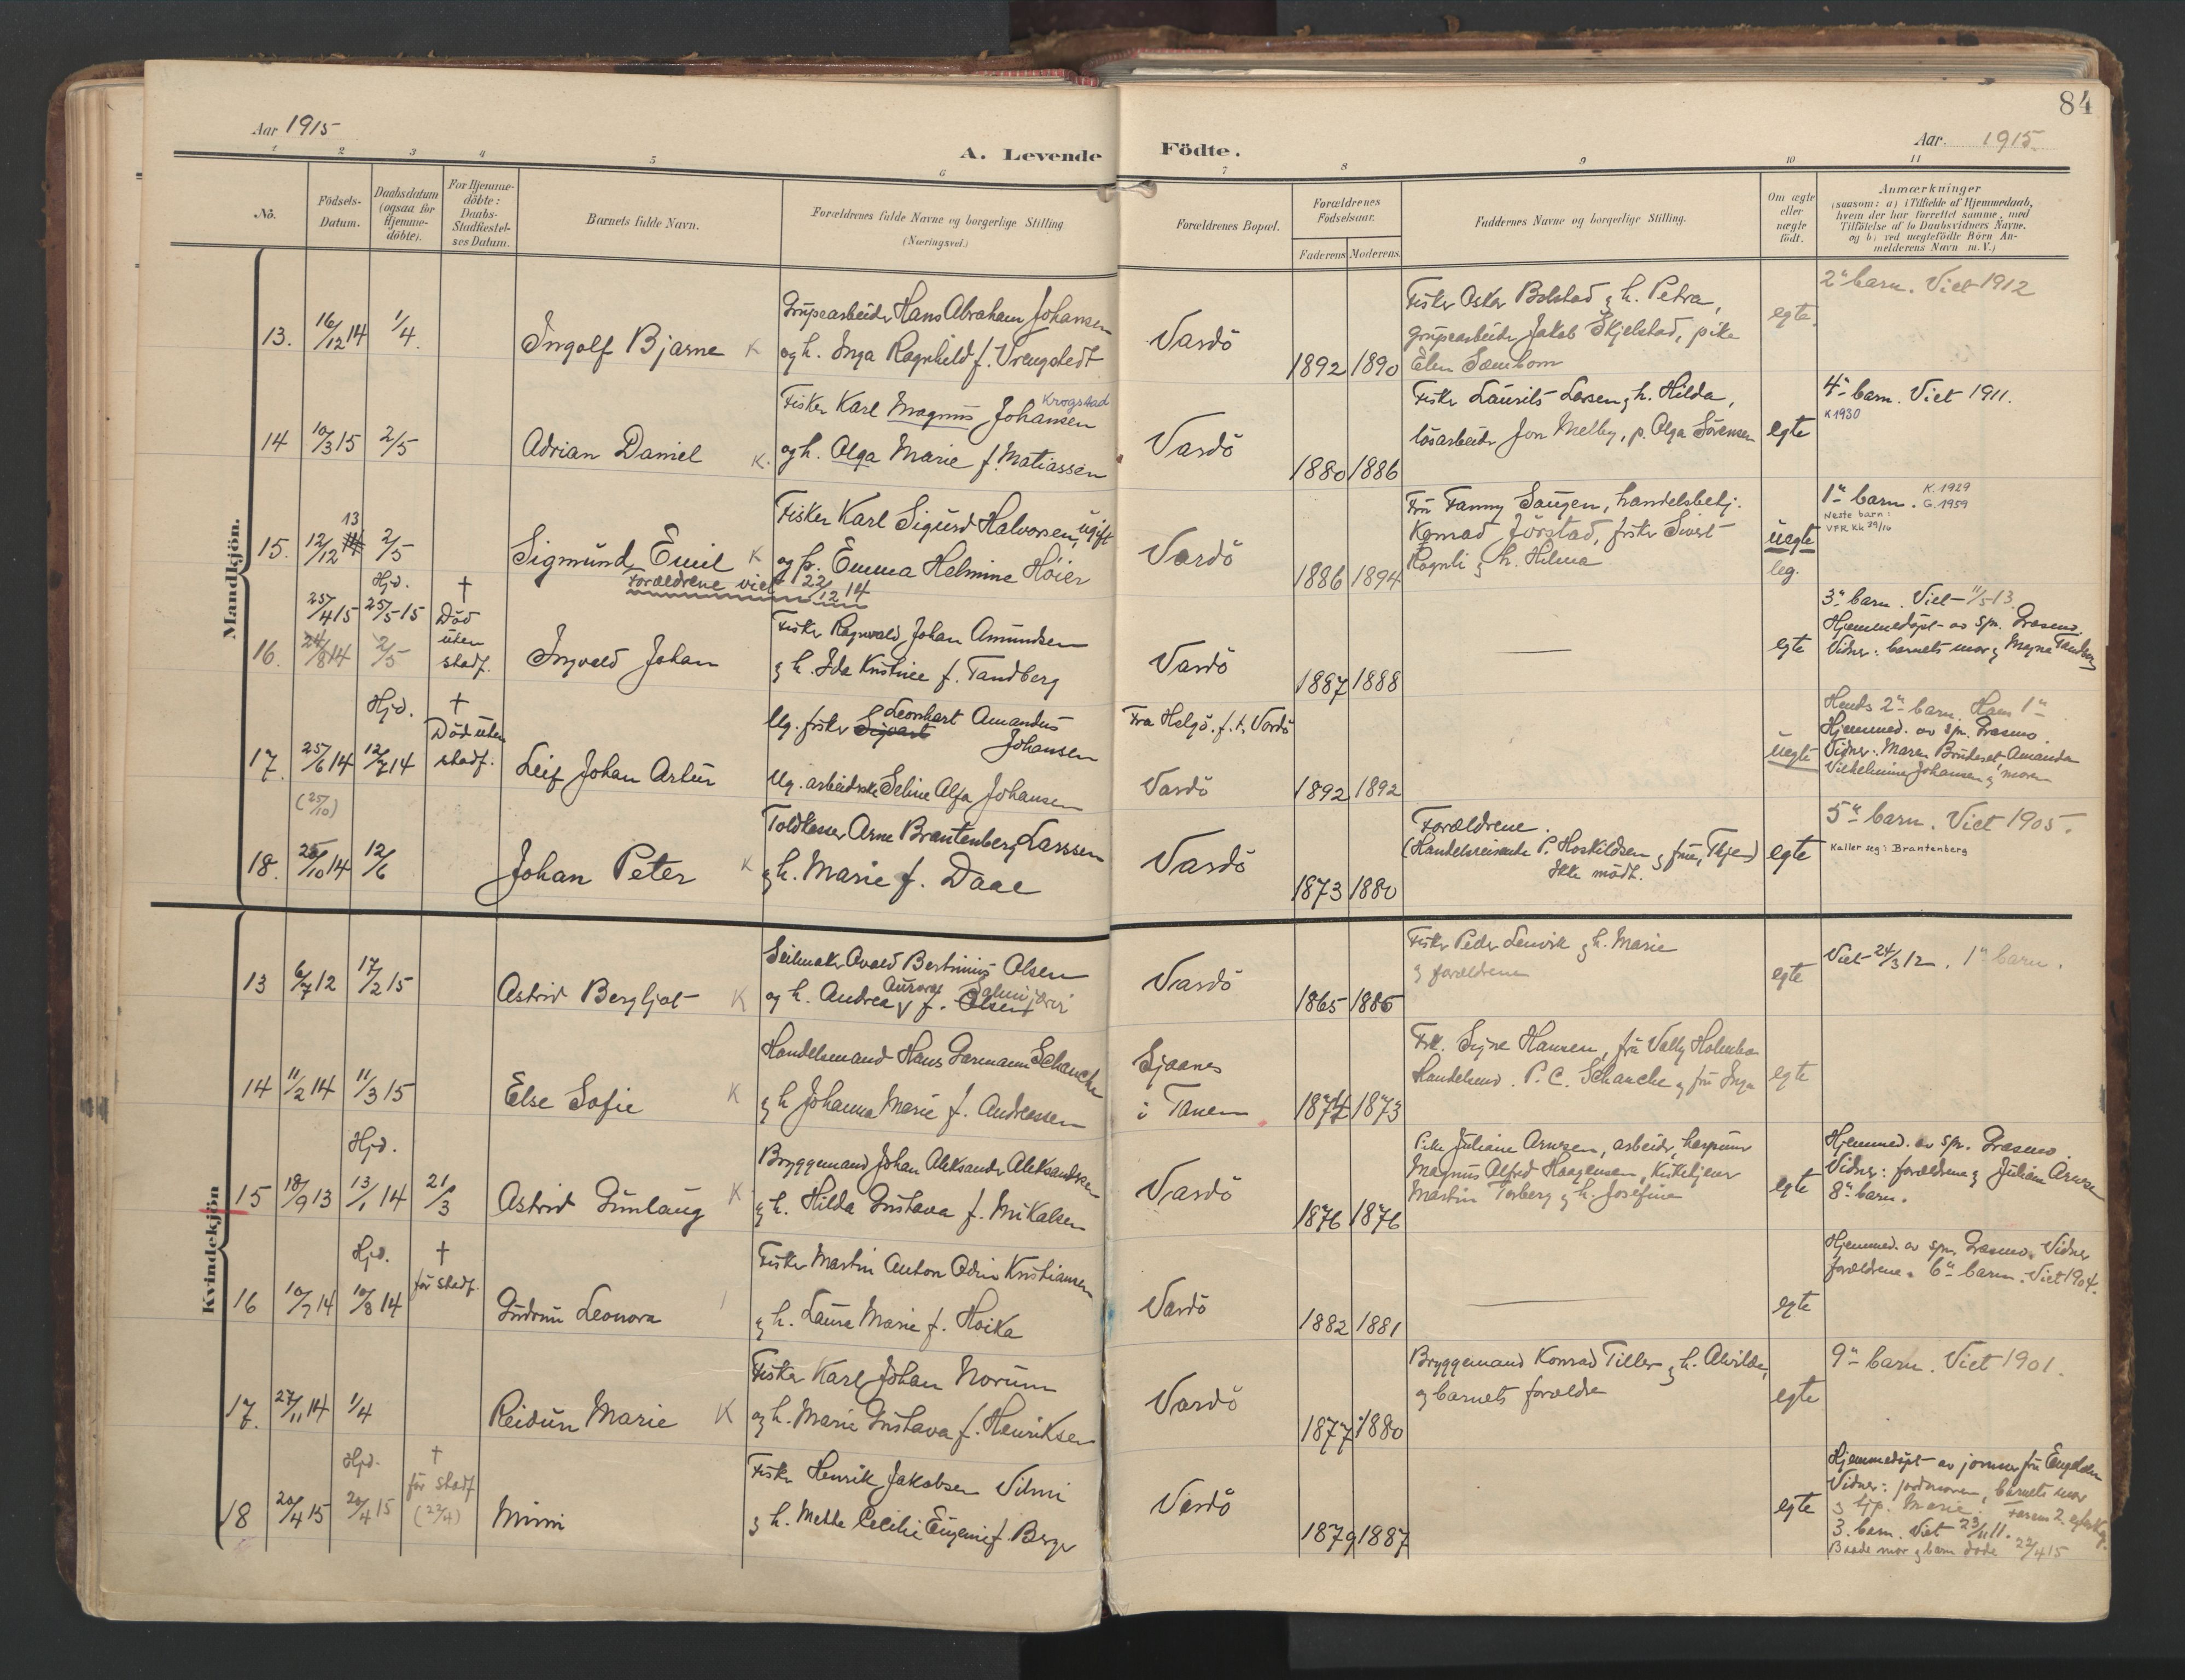 84
Aar 1915
A. Levende Födte.
Aar. 1915.
1 2 3 4 5 6 7 8 9 10 11
No.
Födsels-Datum.
Daabsdatum (ogsaa for Hjemme-döbte).
For Hjemme-döbte: Daabs-Stadfæstel-ses Datum.
Barnets fulde Navn.
Forældrenes fulde Navne og borgerlige Stilling (Næringsvei.)
Forældrenes Bopæl.
Forældrenes Födselsaar.
Faderens Moderens
Faddernes Navne og borgerlige Stilling.
Om ægte eller uægte födt.
Anmærkninger
(saasom: a) i Tilfælde af Hjemmedaab, hvem der har forrettet samme, med Tilföielse af to Daabsvidners Navne. og b) ved uægtefödte Börn An-melderens Navn m. V.)
Mandkjön.
13. 16/12 14 1/4 Ingolf Bjarne K
Grupearbeider Hans Abraham Johansen
og h. Inga Ragnhild f. Vrengstedt
Vardö 1892 1890
Fisker Oskar Bolstad g h. Petra,
grupearbeider Jakob Skjelstad, pike
Elen
egte.
2det barn. Viet 1912
14 10/3 15 2/5 Adrian Daniel K.
Krogstad
Fisker Karl Magnus Johansen
og h. Olga Marie f. Matiassen
Vardö 1880 1886
Fisker Laurits Larsen g h. Hilda,
lösarbeider Jon Melby, p. Olga Sörensen
egte
4de barn. Viet 1911.
K 1930
13
15. 12/12 2/5 Sigmund Emil K
Fisker Karl Sigurd Halvorsen, ugift
og p. Emma Helmine Höier
Forældrene viet 22/12 14
Vardö 1886 1894
Fru Fanny Saugen, handelsbetj.
Konrad Jörstad, fisker Sivert
Rognli g h. Hilma
uegte
leg.
1ste barn. K. 1929
G. 1959
Neste barn:
VFR Kk 29/16
Hjd. †
25/4 15 25/5 15 Död uten stadf.
16. 24/8 14 2/5 Ingvald Johan
Fisker Ragnvald Johan Amundsen
g h. Ida Kristine f. Tandberg
Vardö 1887 1888
egte
3de barn. Viet 11/5 13
Hjemmedöpt av spr. Grasmo.
Vidner: barnets mor g Magna Tandberg
Hjd. †
Död uten stadf.
17. 25/6 14 12/7 14 Leif Johan Artur
Ug. fisker Sigvart Leonhart Amandus
Johansen
Ug. arbeiderske Seline Alfa Johansen
Fra Helgö. f. t. Vardö
Vardö 1892 1892
uegte
Hends 2det barn. Hans 1ste
Hjemmed. av spr. Grasmo.
Vidner: Maren Amanda
Vilhelmine Johansen g moren
(25/10)
18. 25/10 14 12/6 Johan Peter K
Toldkasser Arne Brantenberg Larssen
g h. Marie f. Daae
Vardö 1873 1880
Forældrene.
(Handelsreisende P. Hoskildsen g frue, )
Ikke mödt.
egte
5te barn. Viet 1905.
Kaller seg: Brantenberg
Kvindekjön
13 6/7 12 17/2 15 Astrid Bergljot K
Seilmaker Avald Bertinius Olsen
og h. Andrea Aurora f. Olsen Salmijärvi
Vardö 1865 1886
Fisker Peder Lenvik g h. Marie
g forældrene
egte
Viet 24/3 12. 1ste barn.
14 11/2 14 11/3 15 Else Sofie K
Handelsmand Hans Garmann Schanche
g h Johanna Marie f. Andreassen
i Tanen 1874 1873
Frk. Signe Hansen, fru Vally Holmboe
Handelsmd. P. C. Schanche g fru Inga
egte
Hjd.
15 18/9 13 13/1 14 21/3 Astrid Gunlaug K
Bryggemand Johan Aleksander Aleksandersen
g h. Hilda Gustava f. Mikalsen
Vardö 1876 1876
Pike Juliane Arnesen, arbeider,
Magnus Alfred Haagensen, kirketjener
Martin Torberg g h. Josefine
egte
Hjemmed. av spr. Grasmo.
Vidner: forældrene g Juliane Arnesen
8de barn.
Hjd. † för stadf.
16 10/7 14 10/8 14 Gudrun Leonora
Fisker Martin Anton Odin Kristiansen
g h. Laura Marie f. Hoika
Vardö 1882 1881
egte
Hjemmed. av spr. Grasmo. Vidner
forældrene. 6te barn. Viet 1904.
17. 27/11 14 1/4 Reidun Marie K
Fisker Karl Johan Norum
og h. Marie Gustava f. Henriksen
Vardö 1877 1880
Bryggemand Konrad Tiller g h. Alvilde,
og barnets forældre
egte
9de barn. Viet 1901.
Hjd. † för stadf (22/4)
18 20/4 15 20/4 15 Mimi
Fisker Henrik Jakobsen Vilmi
g h. Mette Cecilie Eugenie f. Berger
Vardö 1879 1887
egte
Hjemmedöpt av jormor fru
Vidner: jordmoren, barnets mor
g tjp. Marie. Farens 2. egteskap.
3. barn. Viet 23/11 11.
Baade mor g barn döde 22/4 15